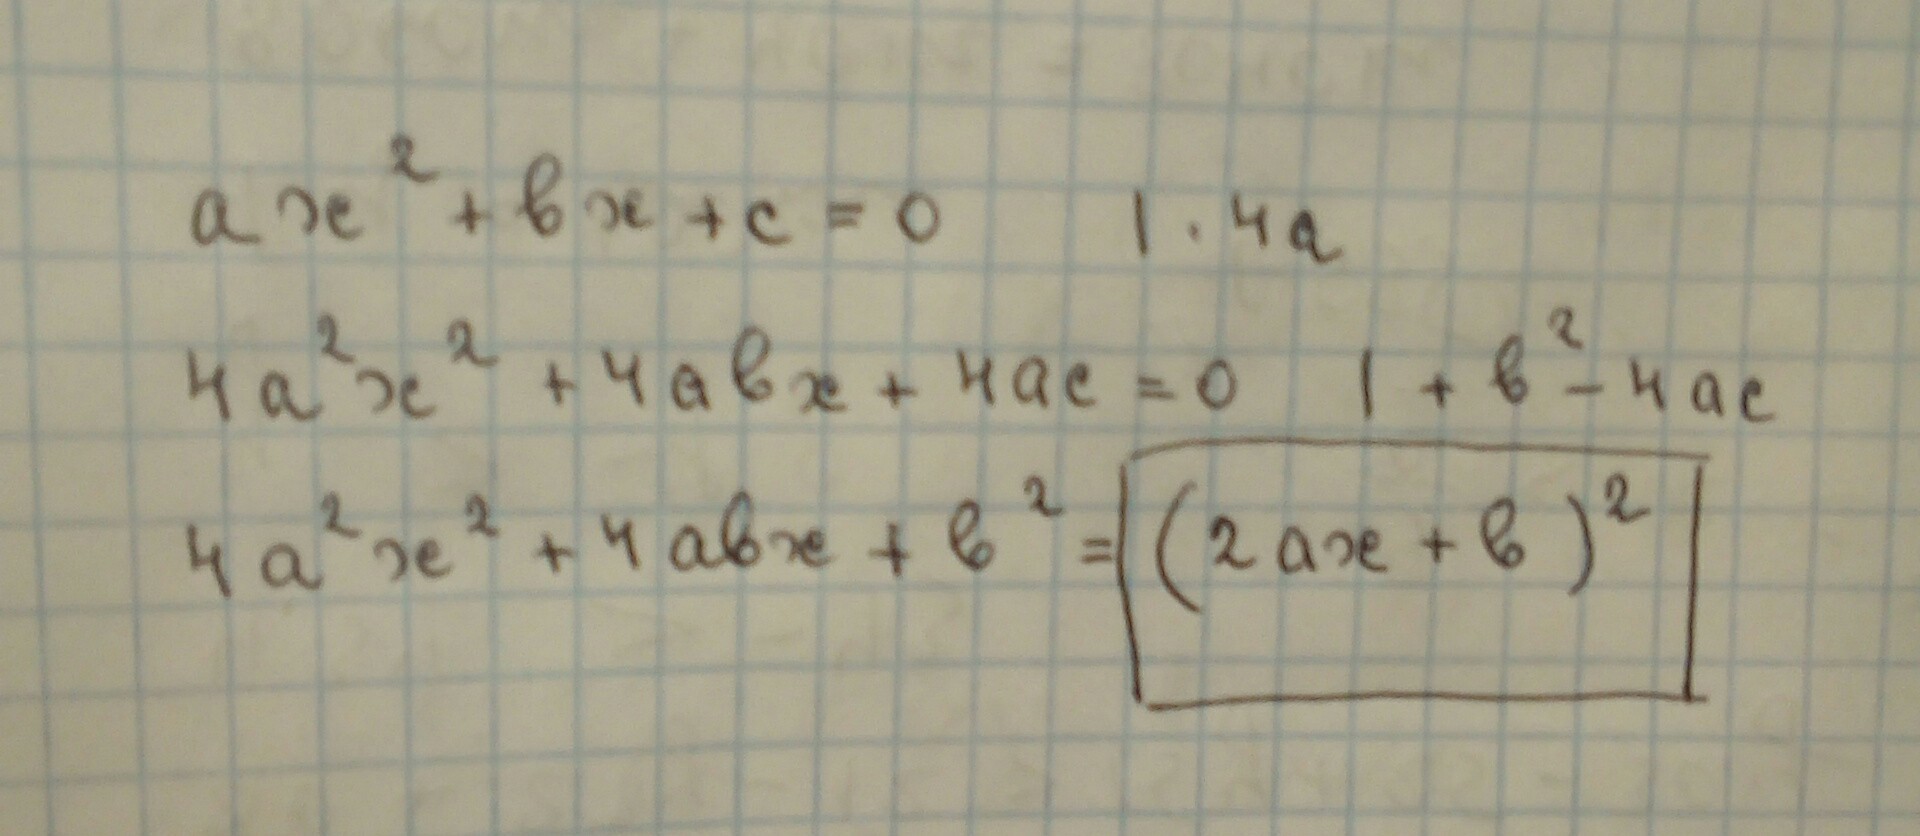 ax² + bx + c = 0 | · 4a
4a²x² + 4abx + 4ac = 0 | + b² - 4ac
4a²x² + 4abx + b² = (2ax + b)²